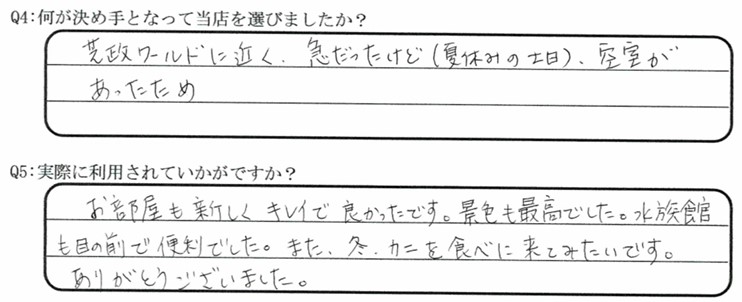 Q4:何が決め手となって当店を選びましたか？
芝政ワールドに近く、急だったけど(夏休みの土日)、空室が
あったため
Q5:実際に利用されていかがですか？
お部屋も新しくキレイで良かったです。景色も最高でした。水族館
も目の前で便利でした。また、冬、カニを食べに来てみたいです。
ありがとうございました。